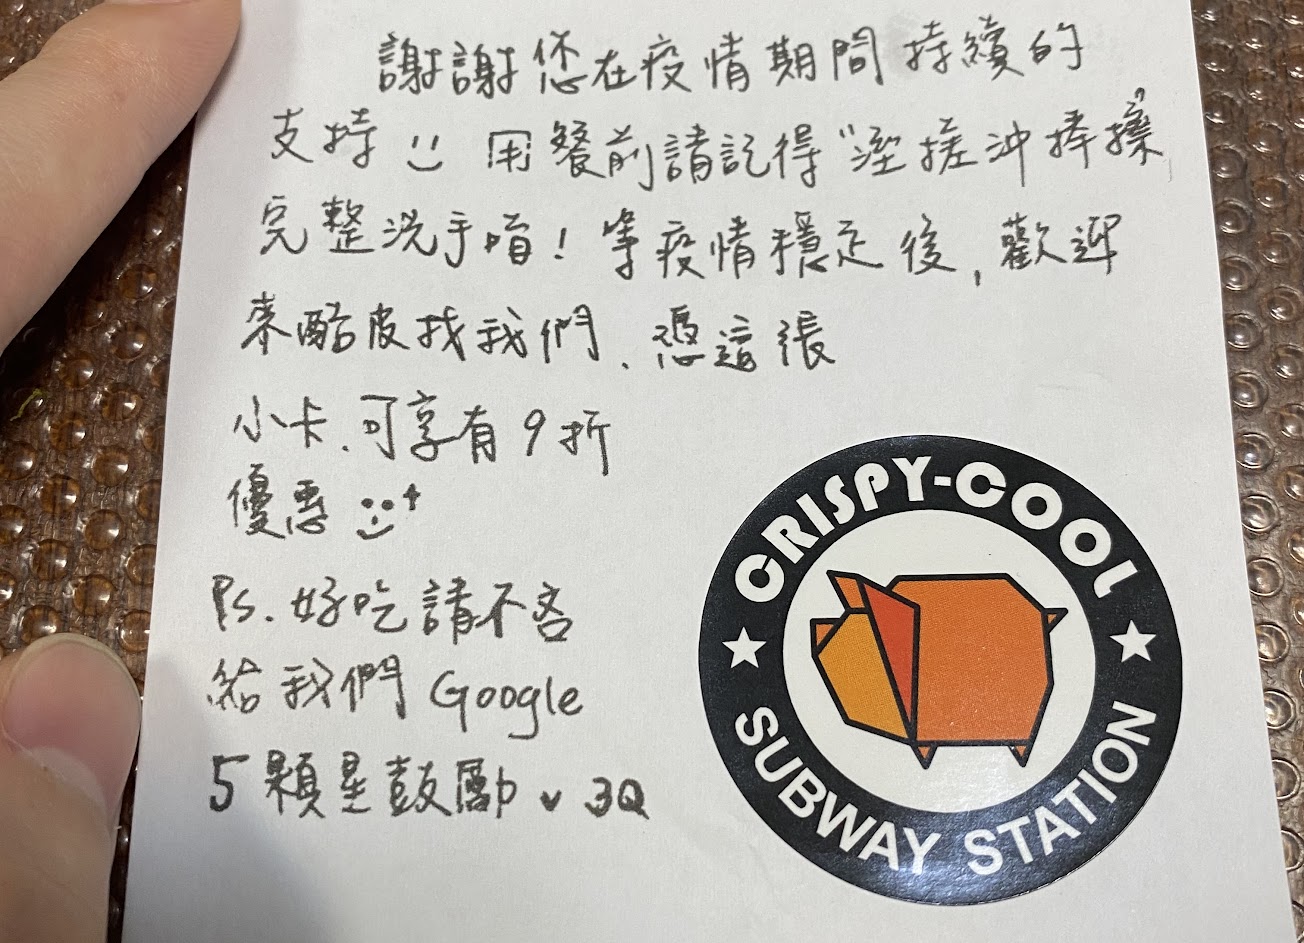 謝謝您在疫情期間持續的
支持 :) 用餐前請記得“溼搓沖捧擦”
完整洗手唷！等疫情穩定後，歡迎
來酷皮找我們、憑這張
小卡、可享有9折
優惠 :)
Ps. 好吃請不吝
給我們 Google
5顆星鼓勵 v 3Q
CRISPY-COOL
SUBWAY STATION